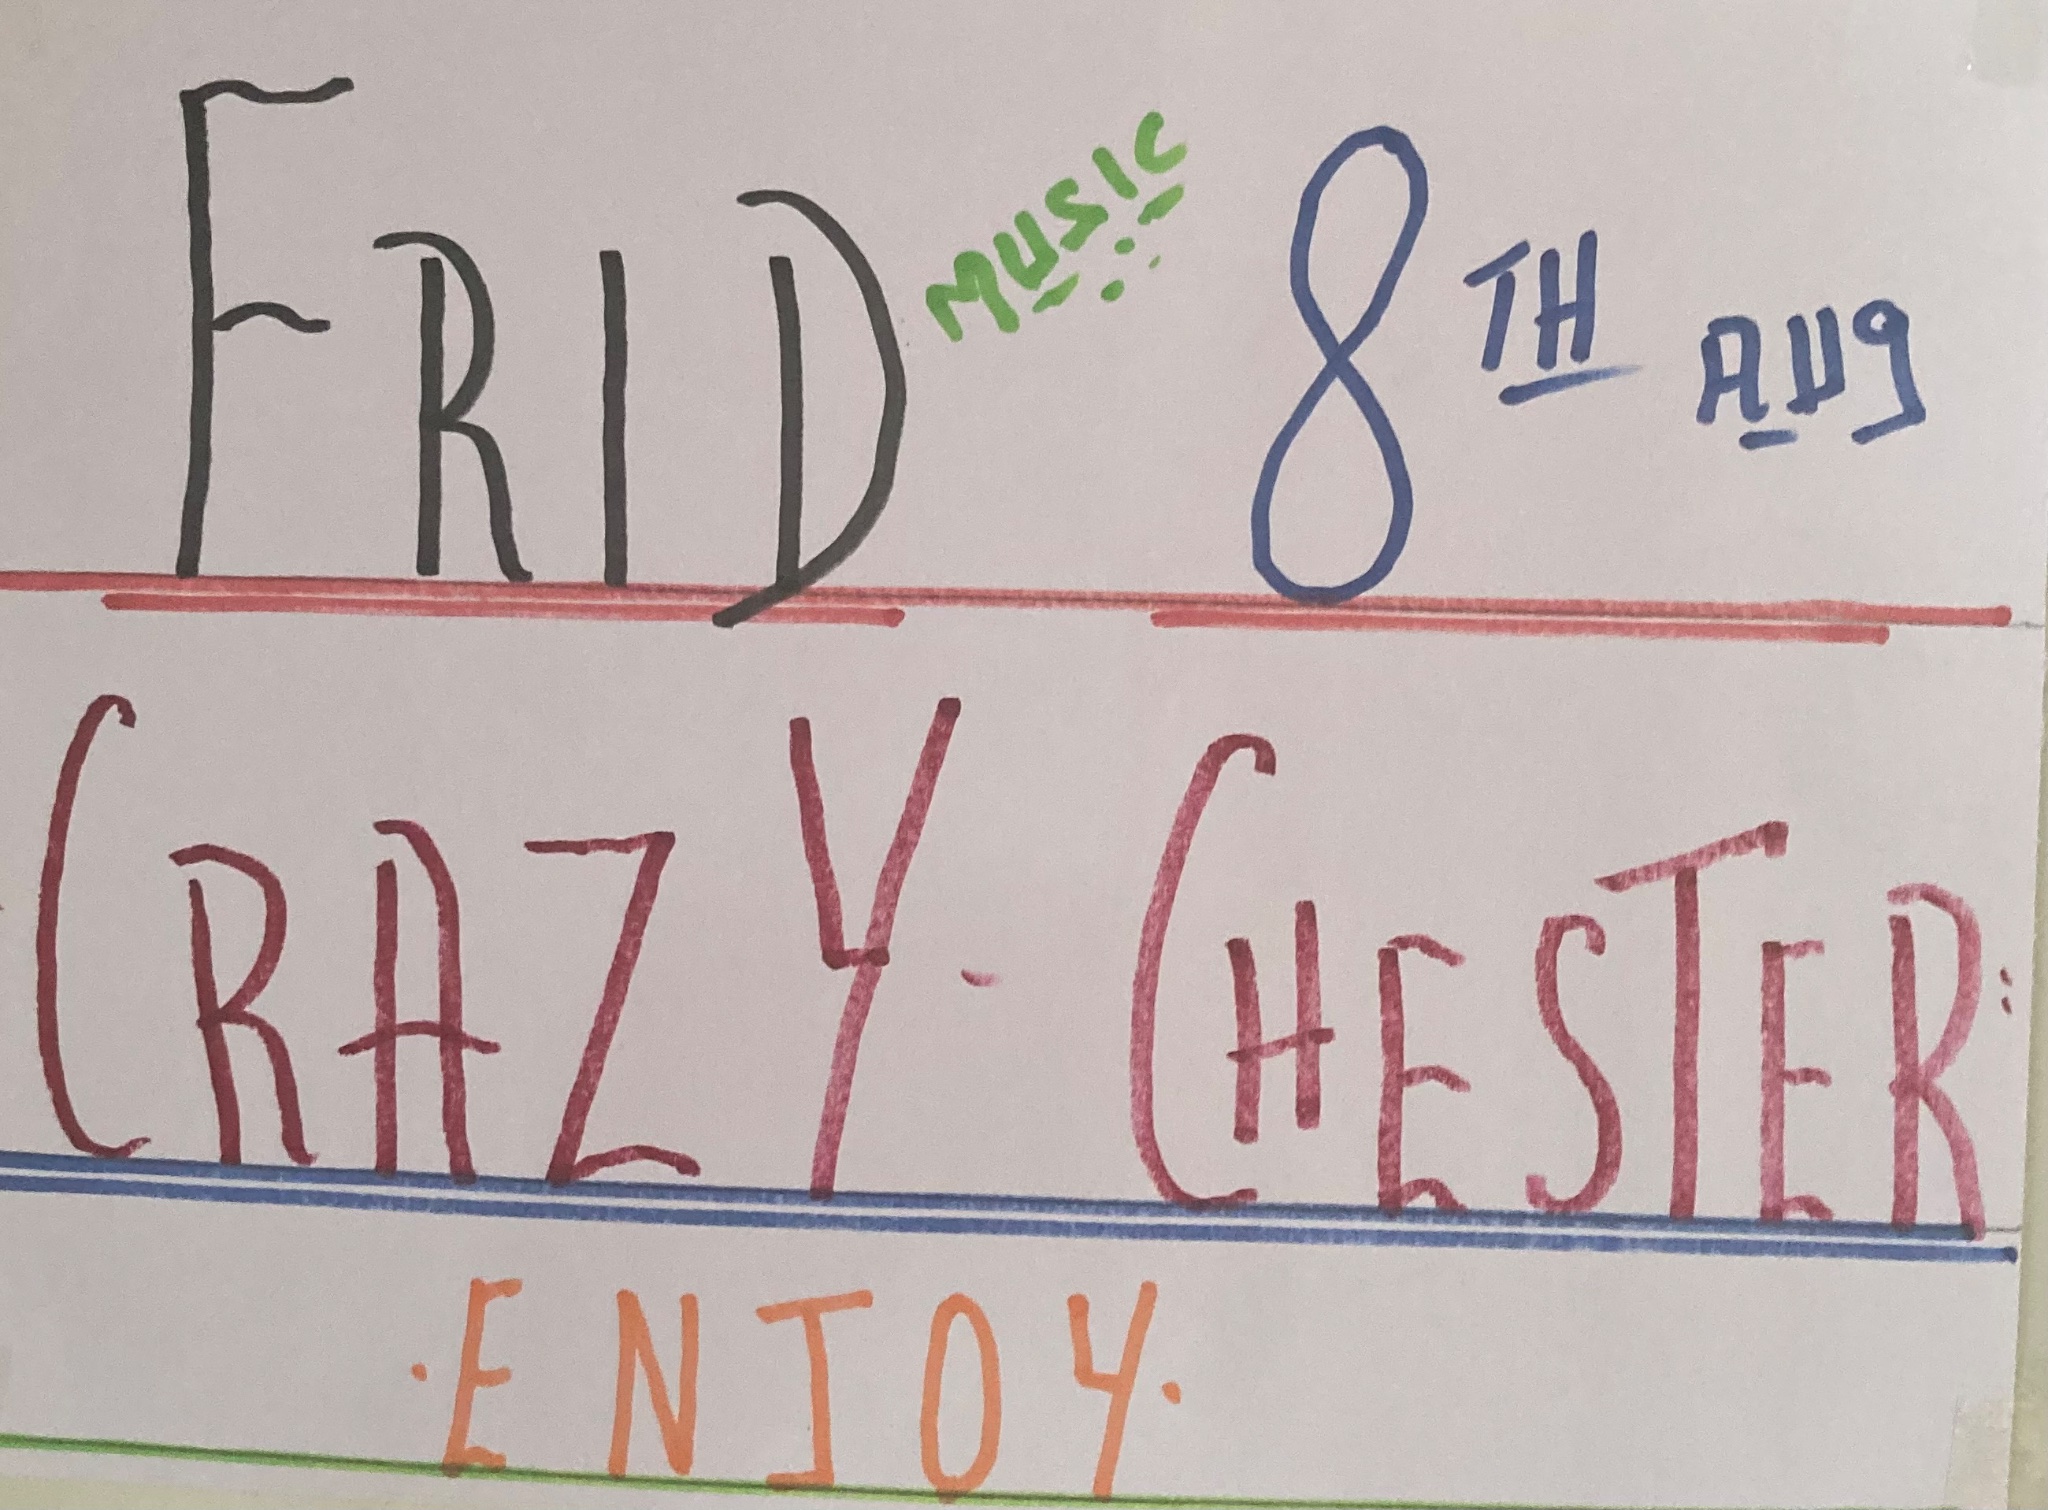 FRID MUSIC 8TH AUG
CRAZY - CHESTER:
·ENJOY·